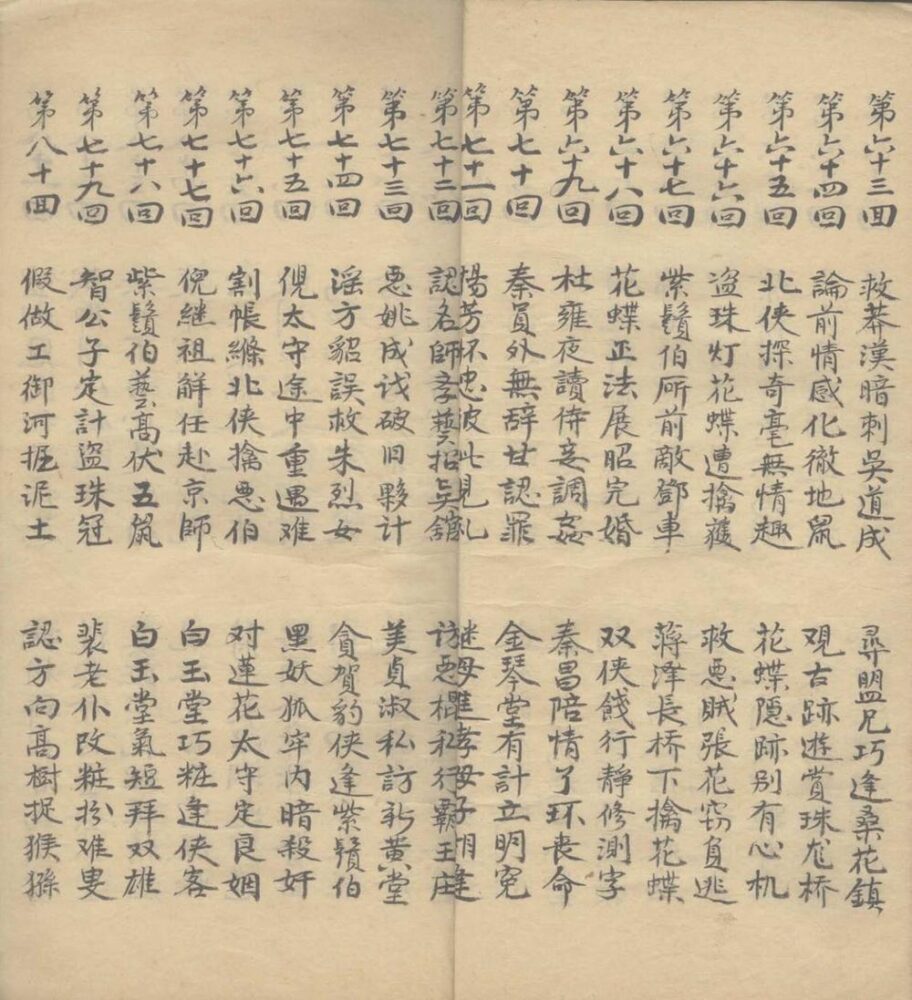 第六十三回 救莽漢暗刺吳道成 尋盟兄巧逢桑花鎮
第六十四回 論前情感化徹地鼠 观古跡遊賞珠龙桥
第六十五回 北侠探奇毫無情趣 花蝶隠跡别有心机
第六十六回 盗珠灯花蝶遭擒獲 救悪賊張花窃負逃
第六十七回 紫鬚伯所前敵鄧車 蒋泽長桥下擒花蝶
第六十八回 花蝶正法展昭完婚 双侠餞行静修測字
第六十九回 杜雍夜讀侍妾調姦 秦昌陪情了环丧命
第七十回 秦員外無辞甘認罪 金琴堂有計立明冤
第七十一回 楊芳怀忠彼此見礼 継母進孝母子相逢
第七十二回 認名師学藝招矣舘 访悪棍私行霸王庄
第七十三回 悪姚成识破旧夥计 美貞淑私訪新黄堂
第七十四回 淫方貂誤救朱烈女 貪賀豹侠逢紫鬚伯
第七十五回 倪太守途中重遇难 黑妖狐牢内暗殺奸
第七十六回 割帳縧北侠擒悪伯 对莲花太守定良姻
第七十七回 倪継祖解任赴京師 白玉堂巧粧逢侠客
第七十八回 紫鬚伯藝高伏五鼠 白玉堂氣短拜双雄
第七十九回 智公子定計盗珠冠 裴老仆改粧扮难叟
第八十回 假做工御河挖泥土 認方向高樹捉猴猻